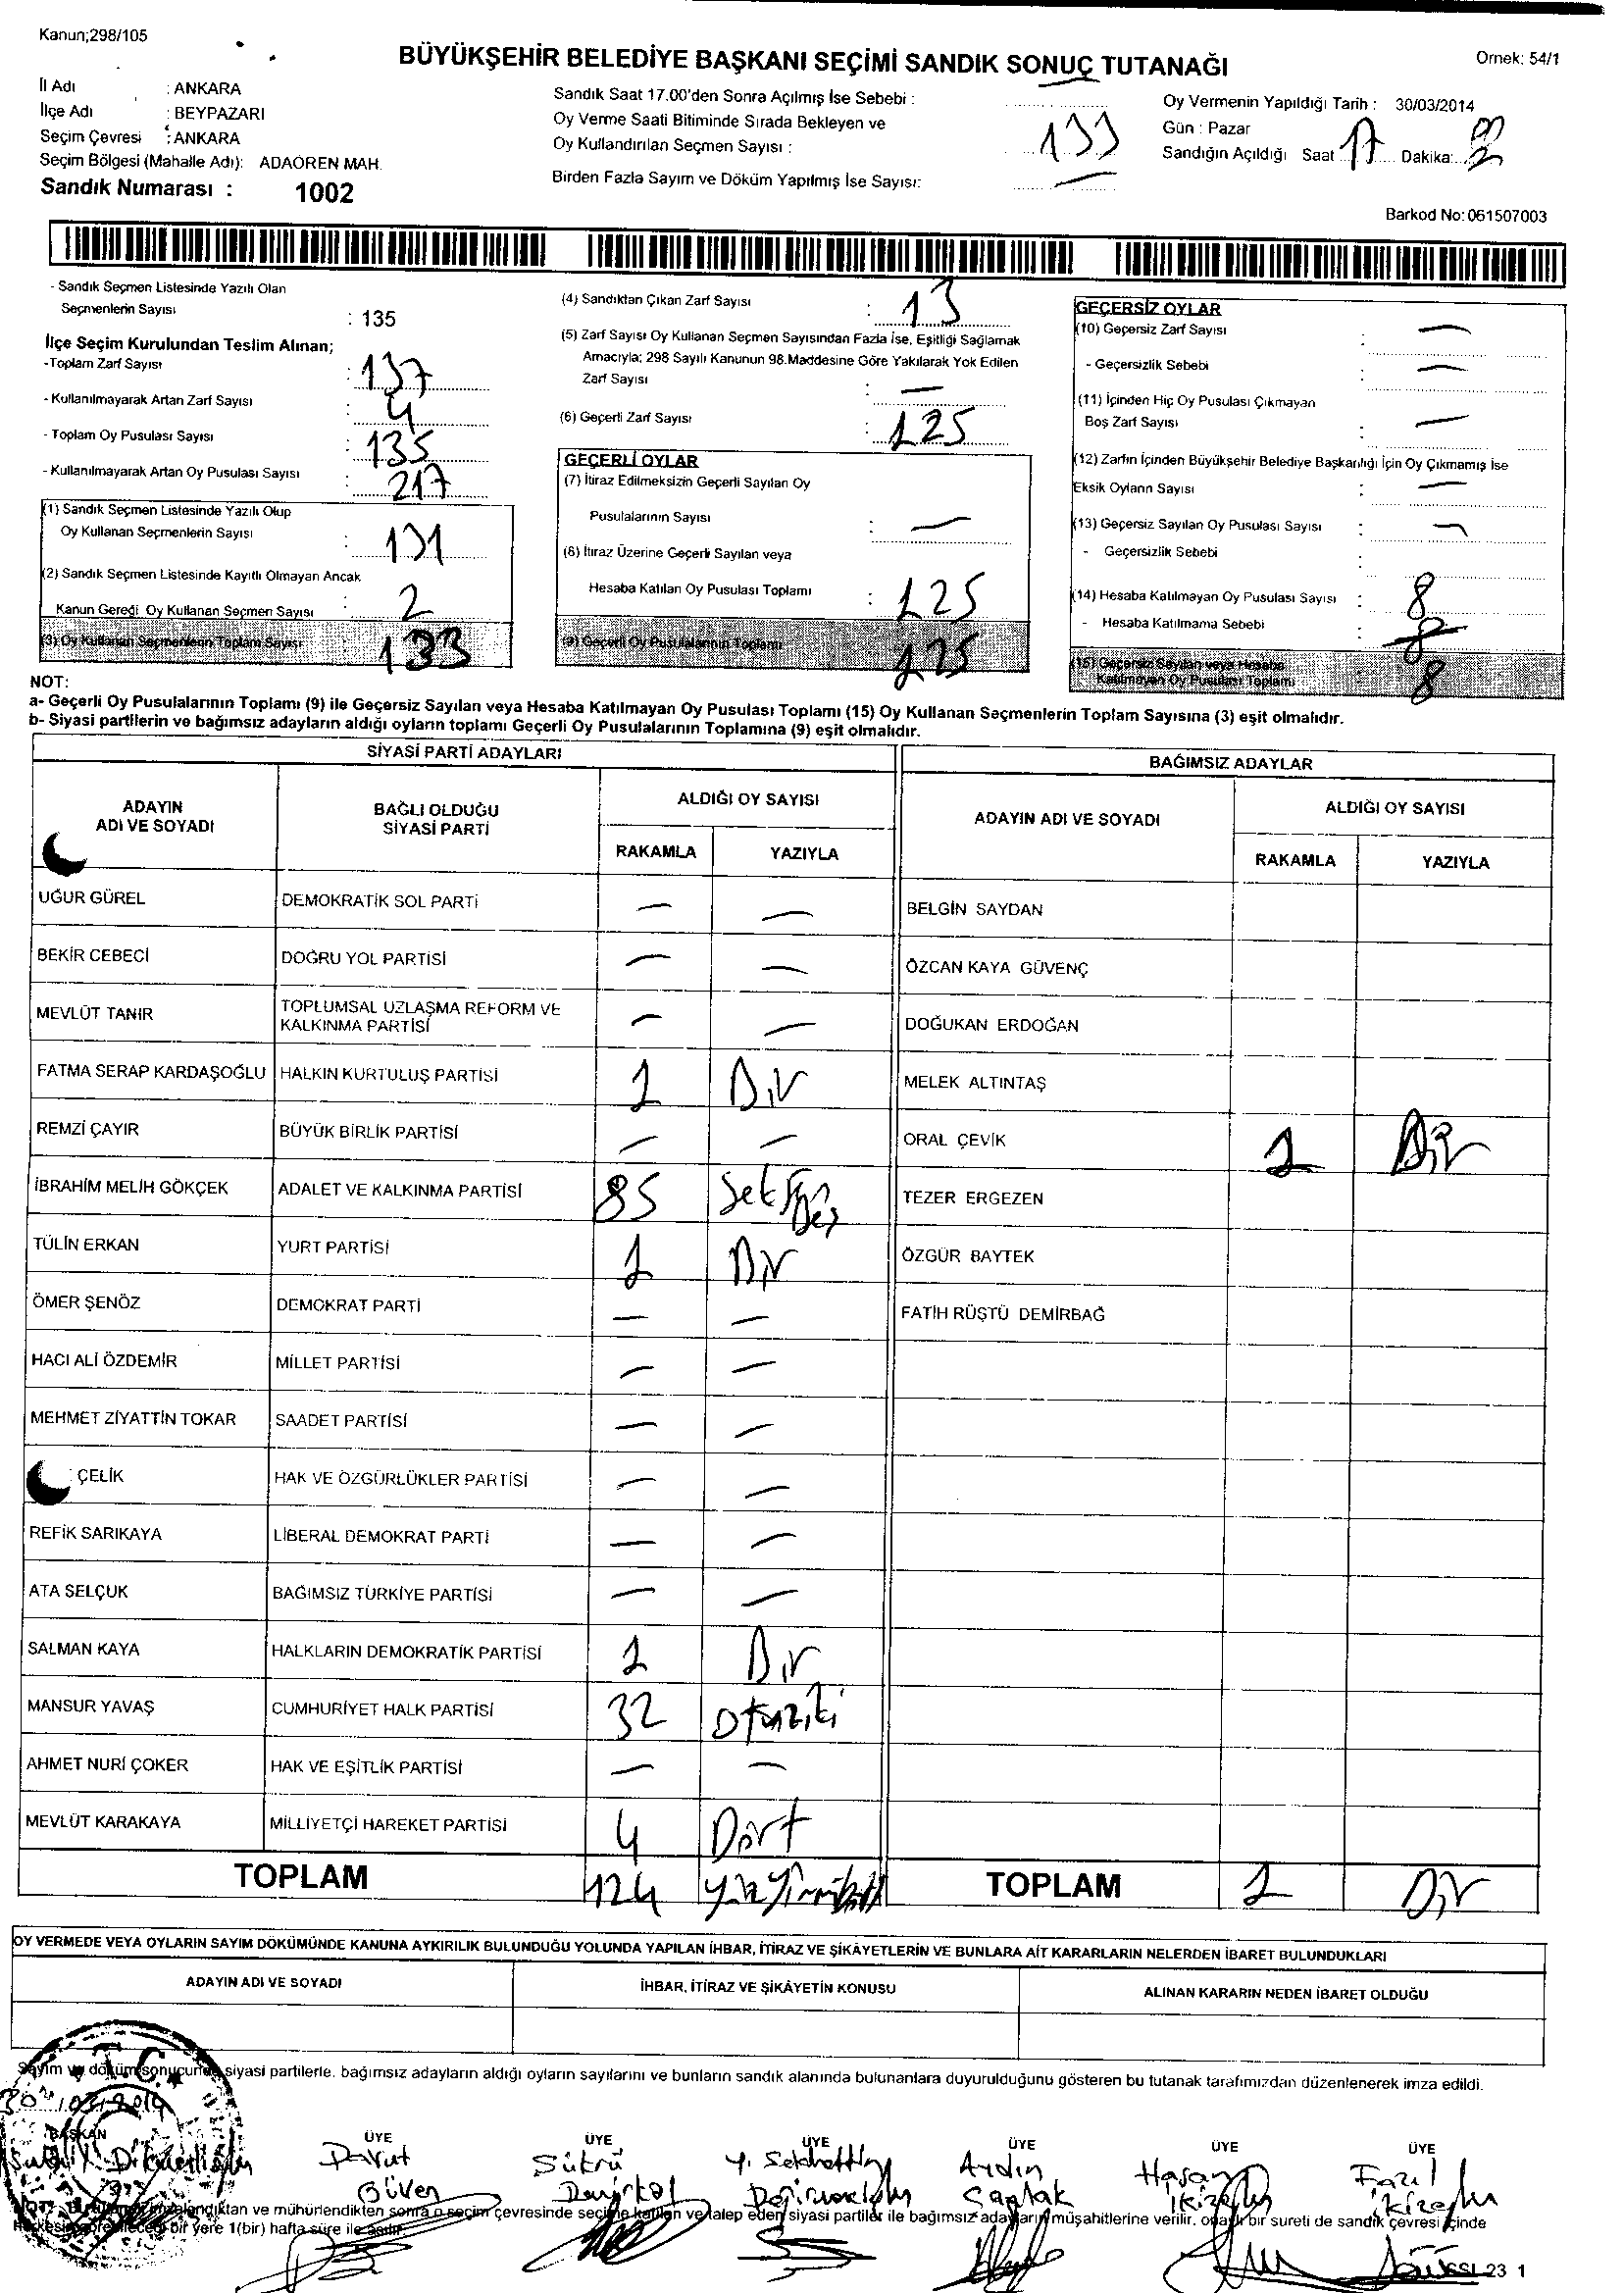 Kanun;298/105
BÜYÜKŞEHİR BELEDİYE BAŞKANI SEÇİMİ SANDIK SONUÇ TUTANAĞI
Ornek: 54/1
İl Adı : ANKARA
İlçe Adı : BEYPAZARI
Seçim Çevresi : ANKARA
Seçim Bölgesi (Mahalle Adı): ADAÖREN MAH.
Sandık Numarası : 1002
Sandık Saat 17.00'den Sonra Açılmış İse Sebebi :
Oy Verme Saati Bitiminde Sırada Bekleyen ve
Oy Kullandırılan Seçmen Sayısı : 133
Birden Fazla Sayım ve Döküm Yapılmış İse Sayısı: —
Oy Vermenin Yapıldığı Tarih : 30/03/2014
Gün : Pazar
Sandığın Açıldığı Saat 17 Dakika:
Barkod No: 061507003
- Sandık Seçmen Listesinde Yazılı Olan
Seçmenlerin Sayısı : 135
İlçe Seçim Kurulundan Teslim Alınan;
-Toplam Zarf Sayısı : 137
- Kullanılmayarak Artan Zarf Sayısı : 4
- Toplam Oy Pusulası Sayısı : 135
- Kullanılmayarak Artan Oy Pusulası Sayısı : 217
(1) Sandık Seçmen Listesinde Yazılı Olup
Oy Kullanan Seçmenlerin Sayısı : 131
(2) Sandık Seçmen Listesinde Kayıtlı Olmayan Ancak
Kanun Gereği Oy Kullanan Seçmen Sayısı : 2
(3) Oy Kullanan Seçmenlerin Toplam Sayısı : 133
(4) Sandıktan Çıkan Zarf Sayısı : 13
(5) Zarf Sayısı Oy Kullanan Seçmen Sayısından Fazla İse, Eşitliği Sağlamak
Amacıyla; 298 Sayılı Kanunun 98.Maddesine Göre Yakılarak Yok Edilen
Zarf Sayısı : —
(6) Geçerli Zarf Sayısı : 125
GEÇERLİ OYLAR
(7) İtiraz Edilmeksizin Geçerli Sayılan Oy
Pusulalarının Sayısı : —
(8) İtiraz Üzerine Geçerli Sayılan veya
Hesaba Katılan Oy Pusulası Toplamı : 125
(9) Geçerli Oy Pusulalarının Toplamı 125
GEÇERSİZ OYLAR
(10) Geçersiz Zarf Sayısı : —
- Geçersizlik Sebebi : —
(11) İçinden Hiç Oy Pusulası Çıkmayan
Boş Zarf Sayısı : —
(12) Zarfın İçinden Büyükşehir Belediye Başkanlığı İçin Oy Çıkmamış İse
Eksik Oyların Sayısı : —
(13) Geçersiz Sayılan Oy Pusulası Sayısı : —
- Geçersizlik Sebebi :
(14) Hesaba Katılmayan Oy Pusulası Sayısı : 8
- Hesaba Katılmama Sebebi : 8
(15) Geçersiz Sayılan veya Hesaba
Katılmayan Oy Pusulası Toplamı 8
NOT:
a- Geçerli Oy Pusulalarının Toplamı (9) ile Geçersiz Sayılan veya Hesaba Katılmayan Oy Pusulası Toplamı (15) Oy Kullanan Seçmenlerin Toplam Sayısına (3) eşit olmalıdır.
b- Siyasi partilerin ve bağımsız adayların aldığı oyların toplamı Geçerli Oy Pusulalarının Toplamına (9) eşit olmalıdır.
SİYASİ PARTİ ADAYLARI
ADAYIN ADI VE SOYADI
BAĞLI OLDUĞU SİYASİ PARTİ
ALDIĞI OY SAYISI
RAKAMLA YAZIYLA
UĞUR GÜREL DEMOKRATİK SOL PARTİ — —
BEKİR CEBECİ DOĞRU YOL PARTİSİ — —
MEVLÜT TANIR TOPLUMSAL UZLAŞMA REFORM VE KALKINMA PARTİSİ — —
FATMA SERAP KARDAŞOĞLU HALKIN KURTULUŞ PARTİSİ 1 Bir
REMZİ ÇAYIR BÜYÜK BİRLİK PARTİSİ — —
İBRAHİM MELİH GÖKÇEK ADALET VE KALKINMA PARTİSİ 85 Seksen Beş
TÜLİN ERKAN YURT PARTİSİ 1 Bir
ÖMER ŞENÖZ DEMOKRAT PARTİ — —
HACI ALİ ÖZDEMİR MİLLET PARTİSİ — —
MEHMET ZİYATTİN TOKAR SAADET PARTİSİ — —
ÇELİK HAK VE ÖZGÜRLÜKLER PARTİSİ — —
REFİK SARIKAYA LİBERAL DEMOKRAT PARTİ — —
ATA SELÇUK BAĞIMSIZ TÜRKİYE PARTİSİ — —
SALMAN KAYA HALKLARIN DEMOKRATİK PARTİSİ 1 Bir
MANSUR YAVAŞ CUMHURİYET HALK PARTİSİ 32 Otuziki
AHMET NURİ ÇOKER HAK VE EŞİTLİK PARTİSİ — —
MEVLÜT KARAKAYA MİLLİYETÇİ HAREKET PARTİSİ 4 Dört
TOPLAM 124
BAĞIMSIZ ADAYLAR
ADAYIN ADI VE SOYADI
ALDIĞI OY SAYISI
RAKAMLA YAZIYLA
BELGİN SAYDAN
ÖZCAN KAYA GÜVENÇ
DOĞUKAN ERDOĞAN
MELEK ALTINTAŞ
ORAL ÇEVİK 1 Bir
TEZER ERGEZEN
ÖZGÜR BAYTEK
FATİH RÜŞTÜ DEMİRBAĞ
TOPLAM 1 Bir
OY VERMEDE VEYA OYLARIN SAYIM DÖKÜMÜNDE KANUNA AYKIRILIK BULUNDUĞU YOLUNDA YAPILAN İHBAR, İTİRAZ VE ŞİKAYETLERİN VE BUNLARA AİT KARARLARIN NELERDEN İBARET BULUNDUKLARI
ADAYIN ADI VE SOYADI
İHBAR, İTİRAZ VE ŞİKÂYETİN KONUSU
ALINAN KARARIN NEDEN İBARET OLDUĞU
Sayım ve döküm sonucunda siyasi partilerle, bağımsız adayların aldığı oyların sayılarını ve bunların sandık alanında bulunanlara duyurulduğunu gösteren bu tutanak tarafımızdan düzenlenerek imza edildi.
T.C.
30/03/2014
BAŞKAN ÜYE ÜYE ÜYE ÜYE ÜYE ÜYE
Davut Güven
Şükrü
Aydın Çaplak
Hasan
Fazıl
ve mühürlendikten sonra o seçim çevresinde seçime katılan ve talep eden siyasi partiler ile bağımsız adayların müşahitlerine verilir. onaylı bir sureti de sandık çevresi içinde
bir yere 1(bir) hafta süre ile asılır.
23 1